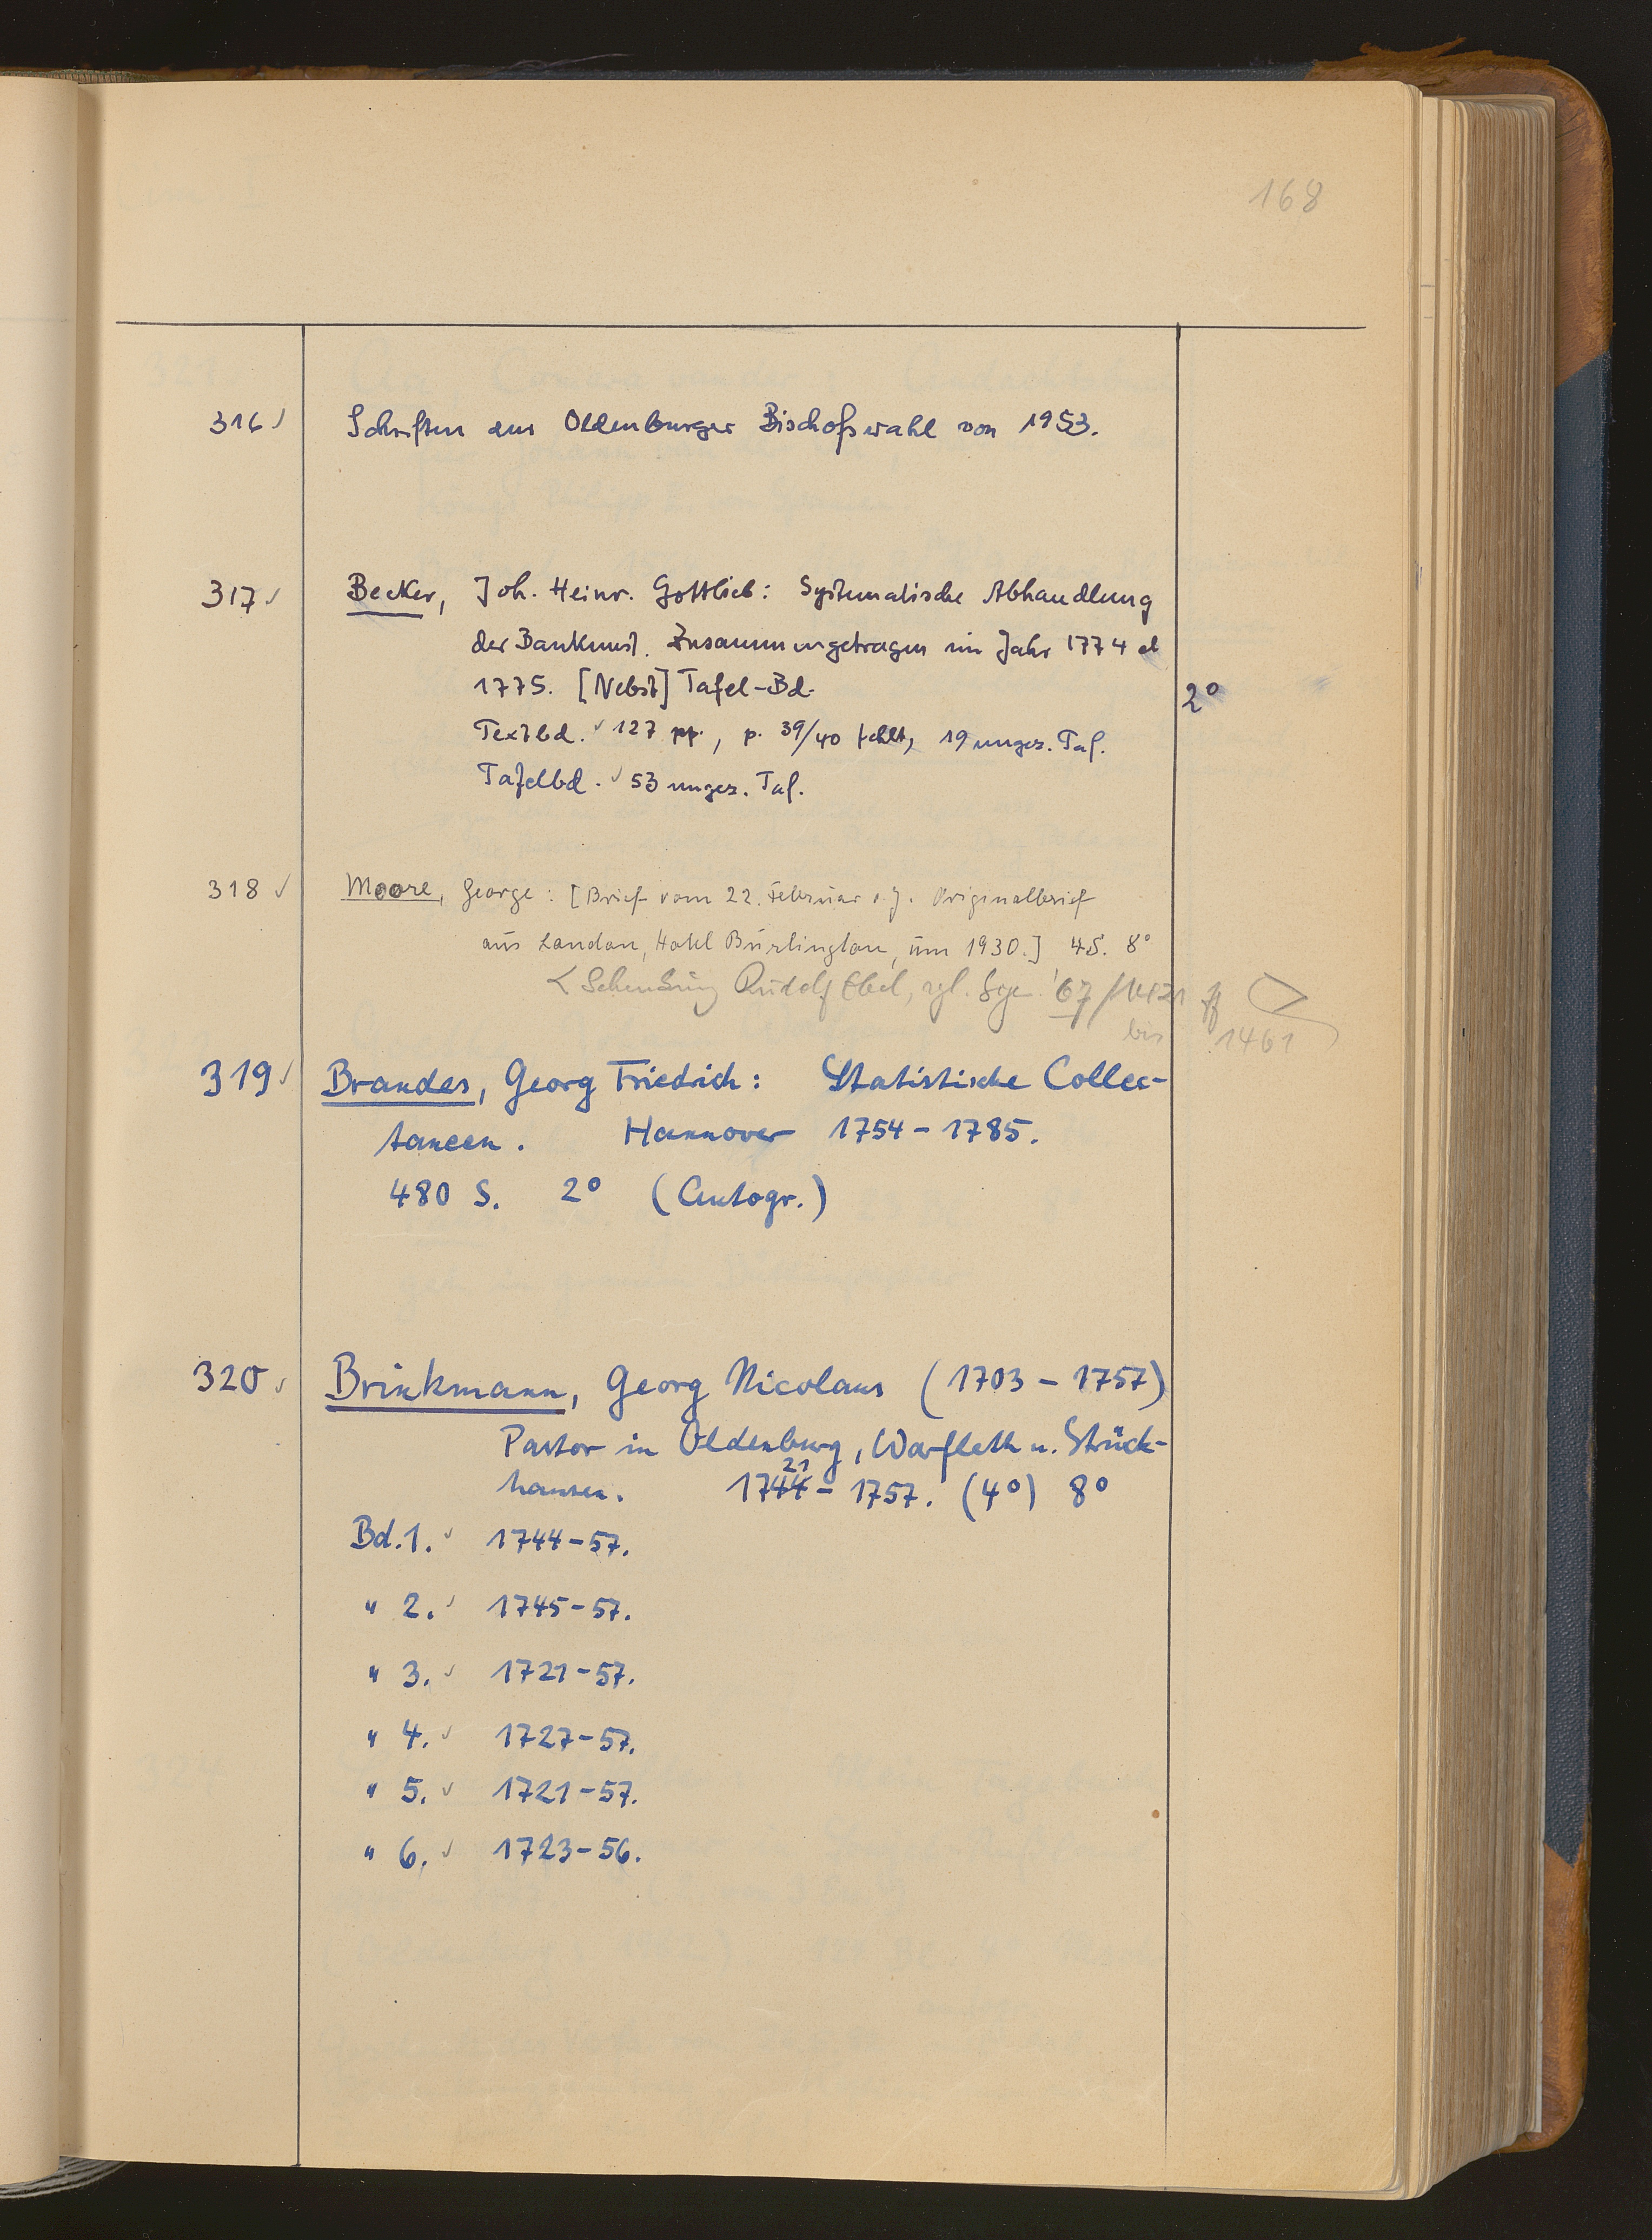 168
316 ✓ Schriften zur Oldenburger Bischofswahl von 1953.
317 ✓ Becker, Joh. Heinr. Gottlieb: Systematische Abhandlung
der Baukunst. Zusammengetragen im Jahr 1774 et
1775. [Nebst] Tafel-Bd.
2°
Textbd. ✓ 127 pp., p. 39/40 fehlt, 19 ungez. Taf.
Tafelbd. ✓ 53 ungez. Taf.
318 ✓ Moore, George: [Brief vom 22. Februar o.J. Originalbrief
aus London, Hotel Burlington, um 1930.] 4 S. 8°
< Schenkung Rudolf Ebel, vgl. 67/1421 ff >
bis 1461
319 ✓ Brandes, Georg Friedrich: Statistische Collec-
taneen. Hannover 1754-1785.
480 S. 2° (Autogr.)
320 ✓ Brinkmann, Georg Nicolaus (1703-1757)
Pastor in Oldenburg, Warfleth u. Strück-
21
hausen. 1744-1757. (4°) 8°
Bd. 1. ✓ 1744-57.
" 2. ✓ 1745-57.
" 3. ✓ 1721-57.
" 4. ✓ 1727-57.
" 5. ✓ 1721-57.
" 6. ✓ 1723-56.